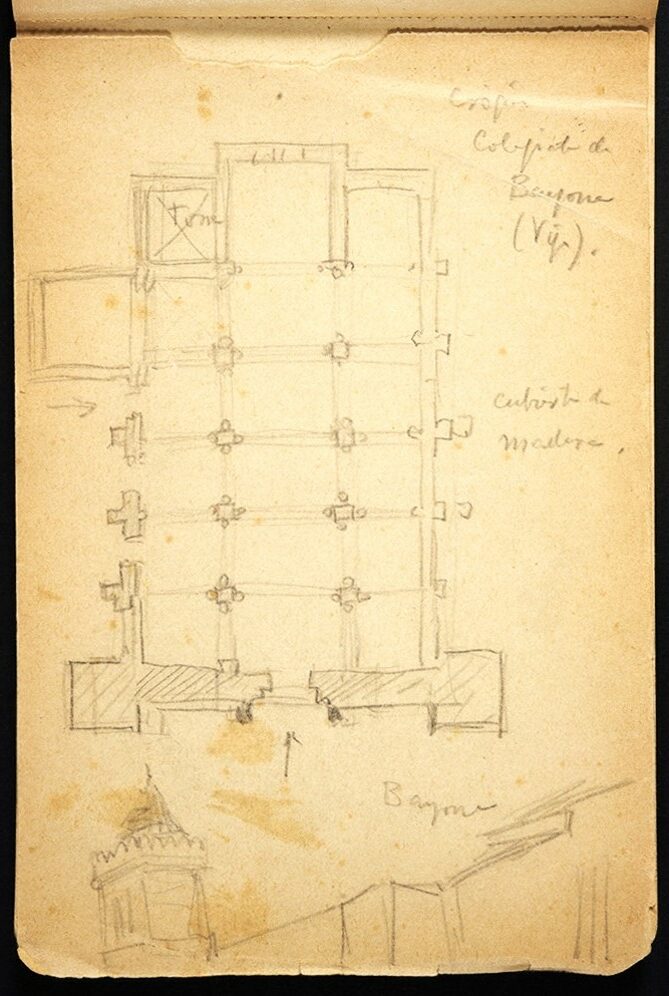 Colegiata de
Bayona
(Vigo).
Torre
cubierta de
madera.
Bayona